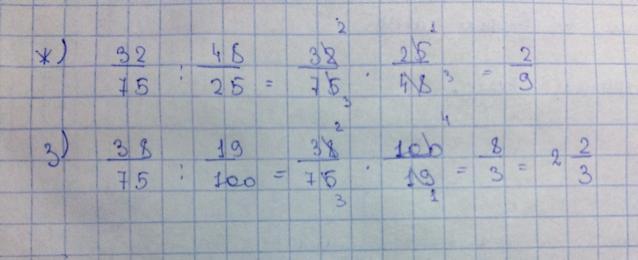 ж) 32/75 : 48/25 = 32/75 · 25/48 = 2/9
з) 38/75 : 19/100 = 38/75 · 100/19 = 8/3 = 2 2/3